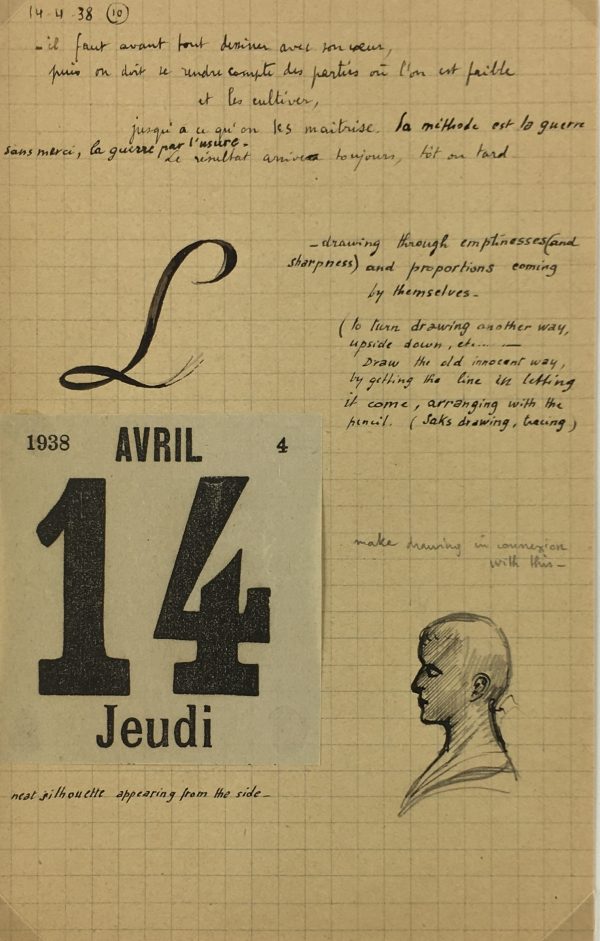 14-4-38 (10)
- il faut avant tout dessiner avec son cœur,
puis on doit se rendre compte des parties où l'on est faible
et les cultiver,
jusqu'à ce qu'on les maîtrise. La méthode est la guerre
sans merci, la guerre par l'usure -
Le résultat arrivera toujours, tôt ou tard
- drawing through emptinesses (and
sharpness) and proportions coming
by themselves -
(to turn drawing another way,
upside down, etc.......
Draw the old innocent way,
by getting the line in letting
it come, arranging with the
pencil. (Saks drawing, tracing)
L
1938 AVRIL 4
14
Jeudi
make drawing in connexion
with this -
neat silhouette appearing from the side -